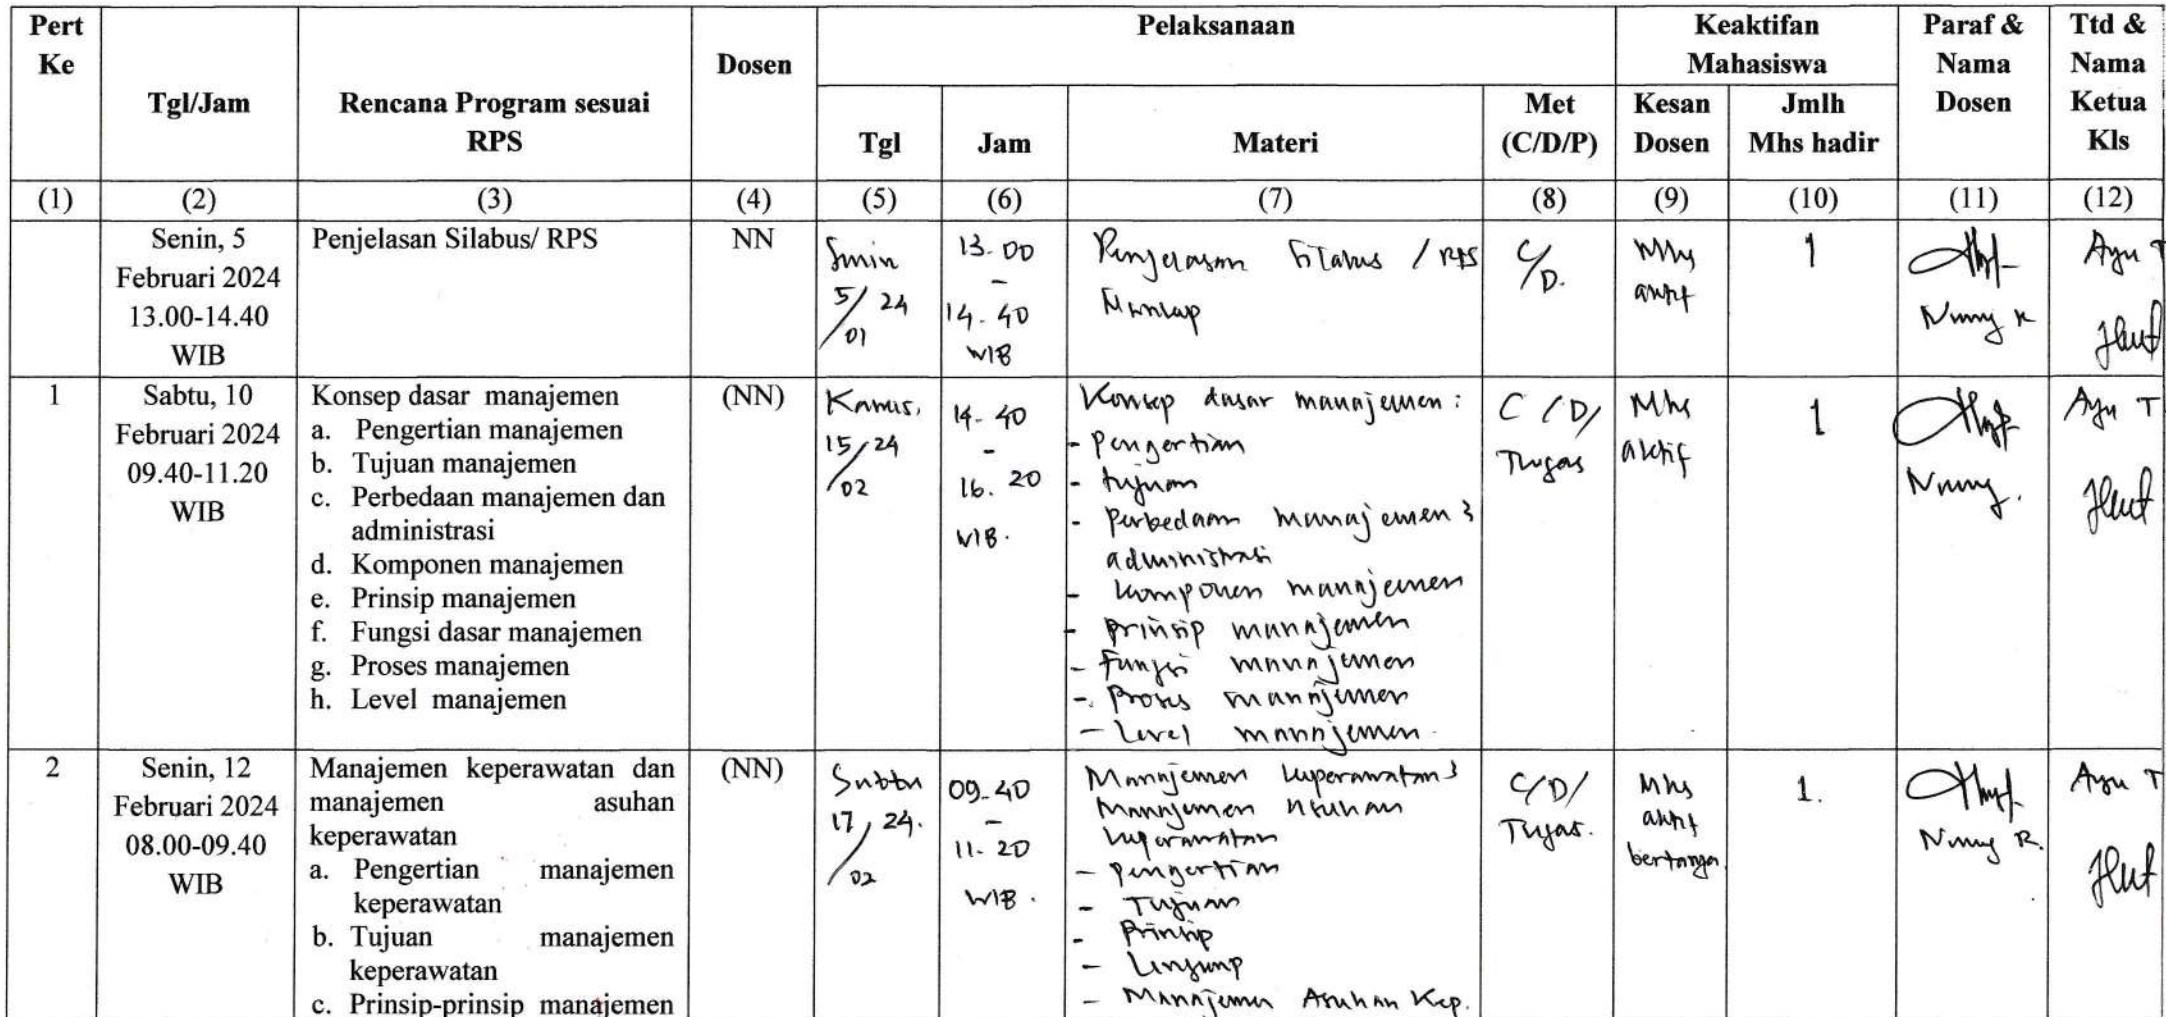 Pert Ke
Tgl/Jam
Rencana Program sesuai RPS
Dosen
Pelaksanaan
Keaktifan Mahasiswa
Paraf & Nama Dosen
Ttd & Nama Ketua Kls
Tgl
Jam
Materi
Met (C/D/P)
Kesan Dosen
Jmlh Mhs hadir
(1) (2) (3) (4) (5) (6) (7) (8) (9) (10) (11) (12)
Senin, 5
Februari 2024
13.00-14.40
WIB
Penjelasan Silabus/ RPS
NN
Senin
5/24
01
13.00
-
14.40
WIB
Penjelasan Silabus / RPS
C/D.
Mhs
aktif
1
Nung R
Ayu T
1
Sabtu, 10
Februari 2024
09.40-11.20
WIB
Konsep dasar manajemen
a. Pengertian manajemen
b. Tujuan manajemen
c. Perbedaan manajemen dan
administrasi
d. Komponen manajemen
e. Prinsip manajemen
f. Fungsi dasar manajemen
g. Proses manajemen
h. Level manajemen
(NN)
Kamis,
15/24
02
14.40
-
16.20
WIB.
Konsep dasar manajemen :
- pengertian
- tujuan
- Perbedaan manajemen &
administrasi
- komponen manajemen
- prinsip manajemen
- Fungsi manajemen
- Proses manajemen
- Level manajemen
C/D/
Tugas
Mhs
aktif
1
Nung.
Ayu T
2
Senin, 12
Februari 2024
08.00-09.40
WIB
Manajemen keperawatan dan
manajemen asuhan
keperawatan
a. Pengertian manajemen
keperawatan
b. Tujuan manajemen
keperawatan
c. Prinsip-prinsip manajemen
(NN)
Sabtu
17/24.
02
09.40
-
11.20
WIB.
Manajemen keperawatan &
Manajemen Asuhan
keperawatan
- pengertian
- Tujuan
- Prinsip
- Lingkup
- Manajemen Asuhan Kep.
C/D/
Tugas.
Mhs
aktif
bertanya
1.
Nung R.
Ayu T